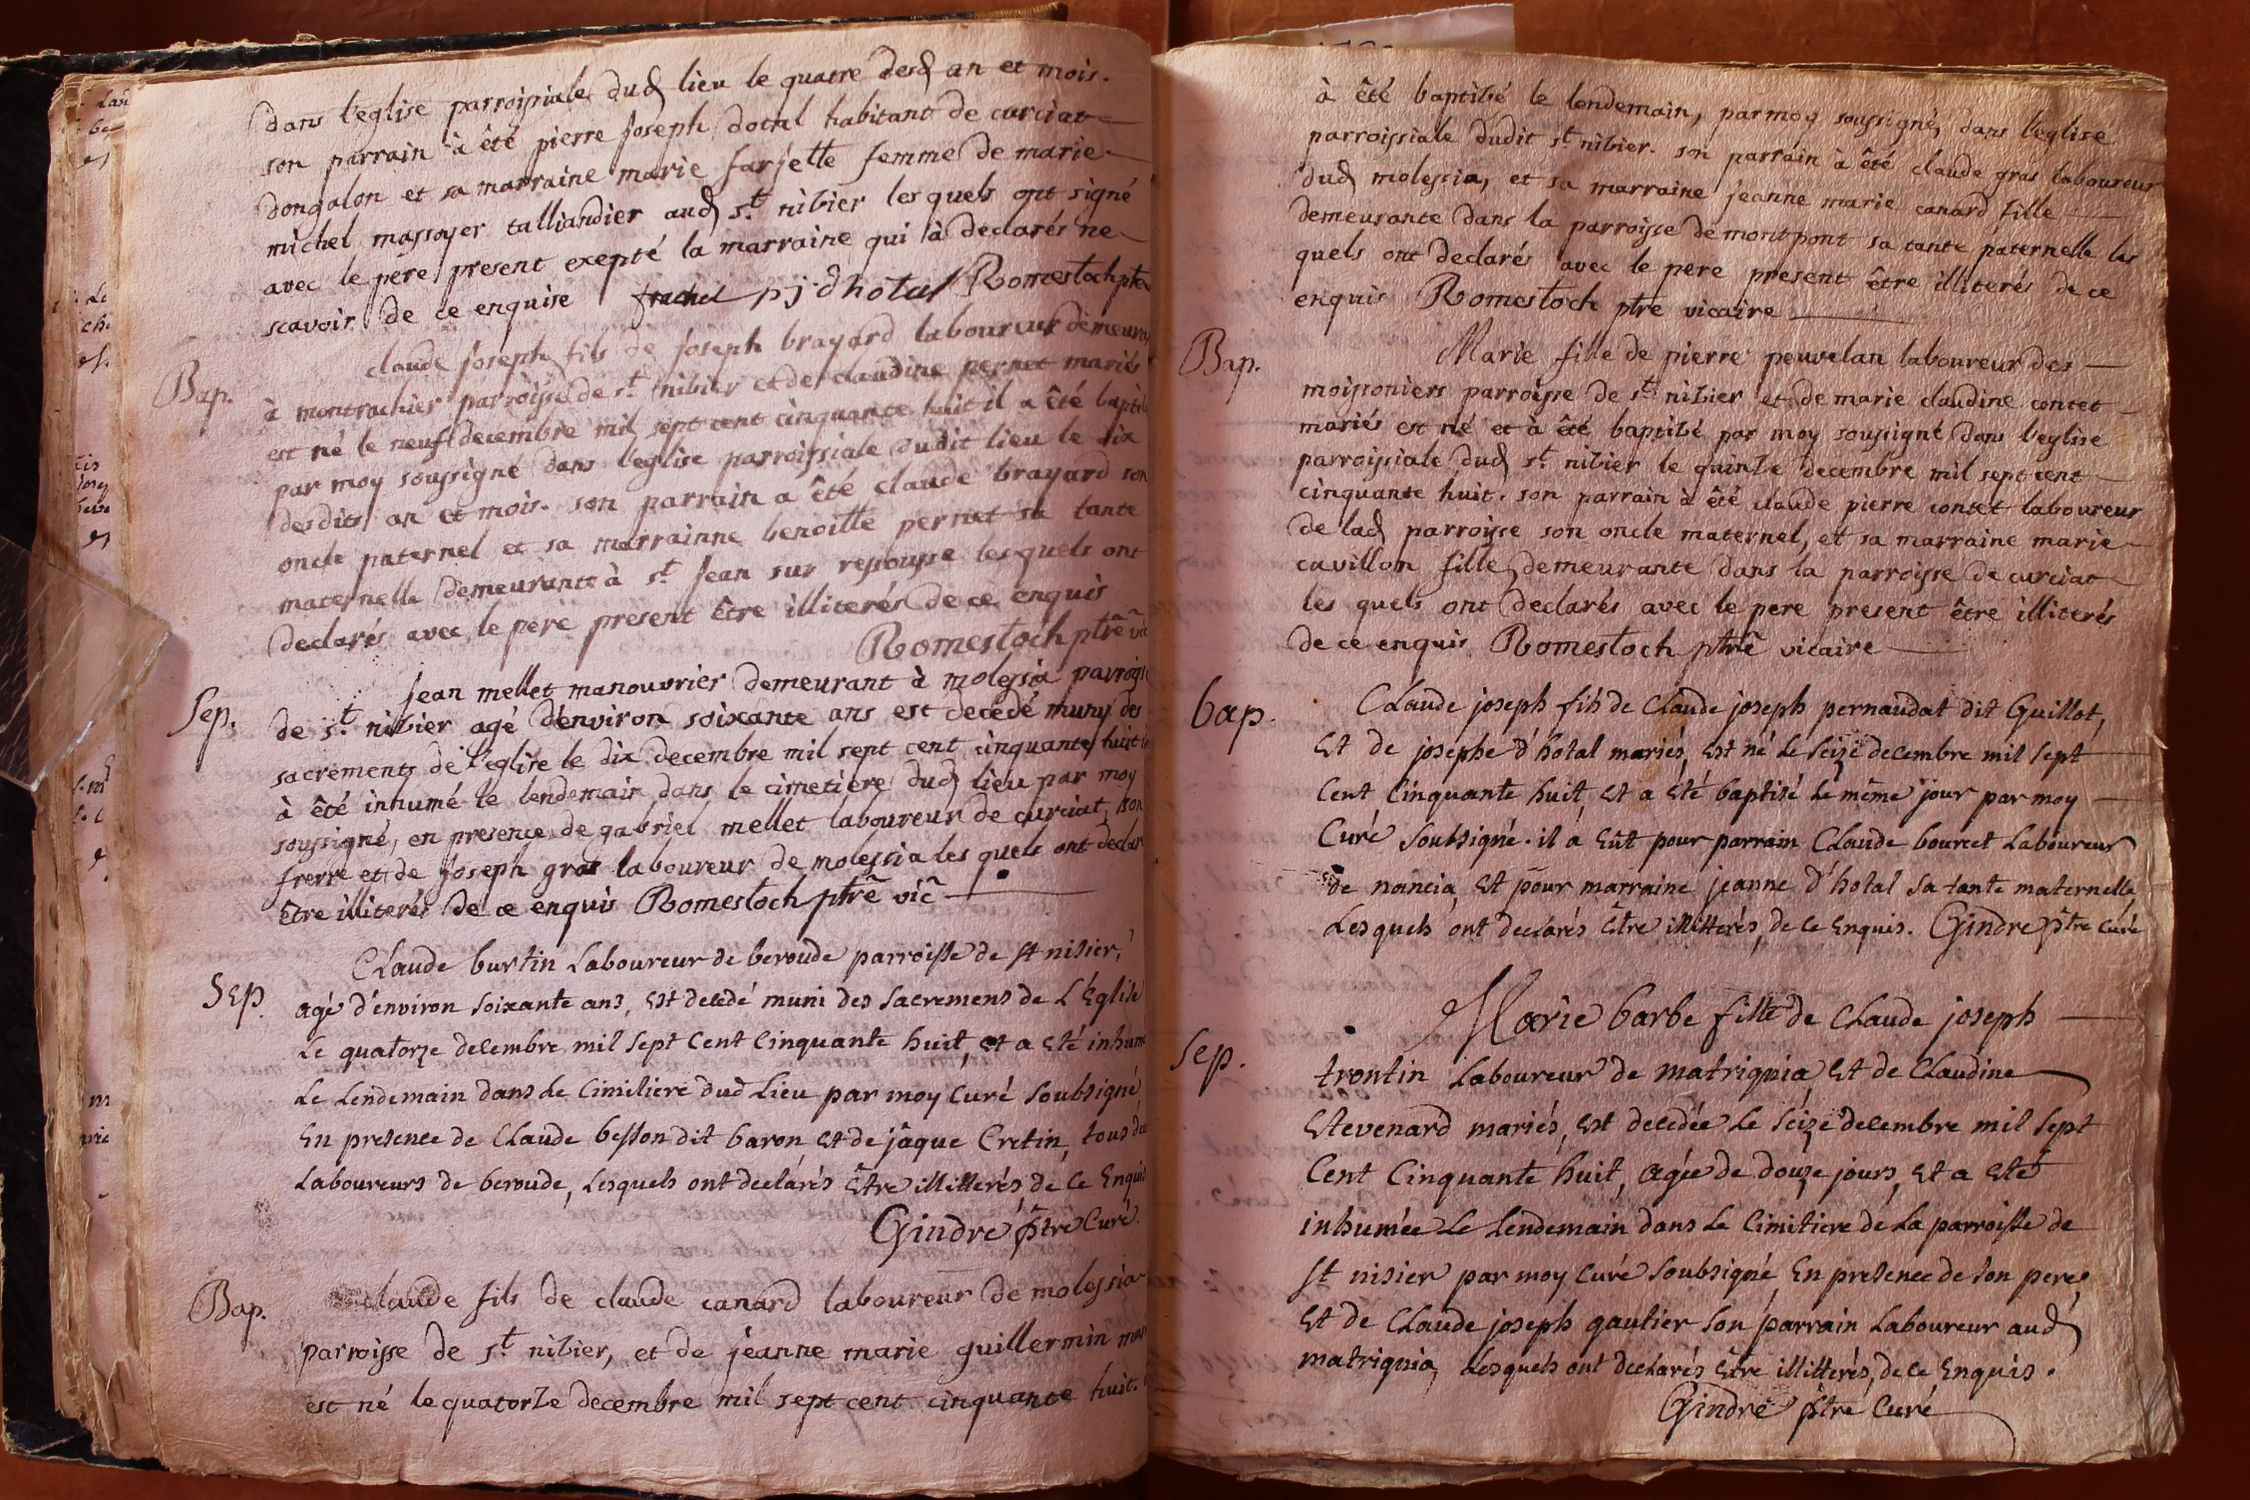 dans l'eglise parroissiale dud lieu le quatre desd an et mois.
son parrain à été pierre joseph dotal habitant de curciat
dongalon et sa marraine marie farjette femme de marie
michel massoyer talliandier aud st. nibier les quels ont signé
avec le pere present exepté la marraine qui à declarés ne
scavoir de ce enquise pj dhotal Romestoch ptre
Bap. claude joseph fils de joseph brayard laboureur demeurant
à montrachier parroisse de st. nibier et de claudine pernet mariés
est né le neuf decembre mil sept cent cinquante huit il a êté baptisé
par moy soussigné dans l'eglise parroissiale dudit lieu le dix
desdits an et mois. son parrain a êté claude brayard son
oncle paternel et sa marrainne benoitte pernet sa tante
maternelle demeurante à st. jean sur ressousse les quels ont
declarés avec le pere present être illiterés de ce enquis
Romestoch ptrê vic
Sep. jean mellet manouvrier demeurant à molessia parroisse
de st. nibier agé d'environ soixante ans est decedé muny des
sacrements de l'eglise le dix decembre mil sept cent cinquante huit
à êté inhumé le lendemain dans le cimetiere dud lieu par moy
soussigné, en presence de gabriel mellet laboureur de curciat, son
frerre et de joseph gras laboureur de molessia les quels ont declar
être illiterés de ce enquis Romestoch ptrê vic
Claude burtin Laboureur de beroude parroisse de st nisier,
Sep. agé d'environ soixante ans, est decedé muni des sacremens de L'Eglise
Le quatorze decembre mil sept cent cinquante huit, et a eté inhumé
Le Lendemain dans Le cimitiere dud Lieu par moy curé soubsigné,
En presence de Claude besson dit baron et de jâque Cretin, tous deux
Laboureurs de beroude, Lesquels ont declarés être illitterés de ce Enquis
Gindre ptre Curé.
Bap. claude fils de claude canard laboureur de molessia
parroisse de st. nibier, et de jeanne marie guillermin mar
est né le quatorze decembre mil sept cent cinquante huit.
à êté baptisé le lendemain, par moy soussigné, dans l'eglise
parroissiale dudit st. nibier. son parrain à êté claude gras laboureur
dud molessia, et sa marraine jeanne marie canard fille
demeurante dans la parroisse de montpont sa tante paternelle les
quels ont declarés avec le pere present être illiterés de ce
enquis Romestoch ptre vicaire
Bap. Marie fille de pierre peuvelan laboureur des
moissoniers parroisse de st. nibier et de marie claudine contet
mariés est né et à êté baptisé par moy soussigné dans l'eglise
parroissiale dud st. nibier le quinze decembre mil sept cent
cinquante huit. son parrain à êté claude pierre contet laboureur
de lad parroisse son oncle maternel, et sa marraine marie
cavillon fille demeurante dans la parroisse de curciat
les quels ont declarés avec le pere present être illiterés
de ce enquis Romestoch ptrê vicaire
bap. Claude joseph fils de Claude joseph pernaudat dit Guillot,
Et de josephe d'hotal mariés, Est né Le seize decembre mil sept
Cent Cinquante huit, Et a été baptisé Le même jour par moy
Curé soubsigné. il a eût pour parrain Claude bourcet Laboureur
de nancia, Et pour marraine jeanne d'hotal sa tante maternelle,
Lesquels ont declarés être illitterés, de ce Enquis. Gindre ptre Curé
Marie barbe fille de Claude joseph
Sep. trontin Laboureur de matrignia Et de Claudine
Etevenard mariés, est decedée Le seize decembre mil sept
Cent Cinquante huit, agée de douze jours, Et a eté
inhumée Le Lendemain dans Le cimitiere de La parroisse de
st nisier par moy curé soubsigné, En presence de son pere,
Et de Claude joseph gautier son parrain Laboureur aud
matrignia, Lesquels ont declarés être illitterés, de ce Enquis.
Gindre ptre Curé